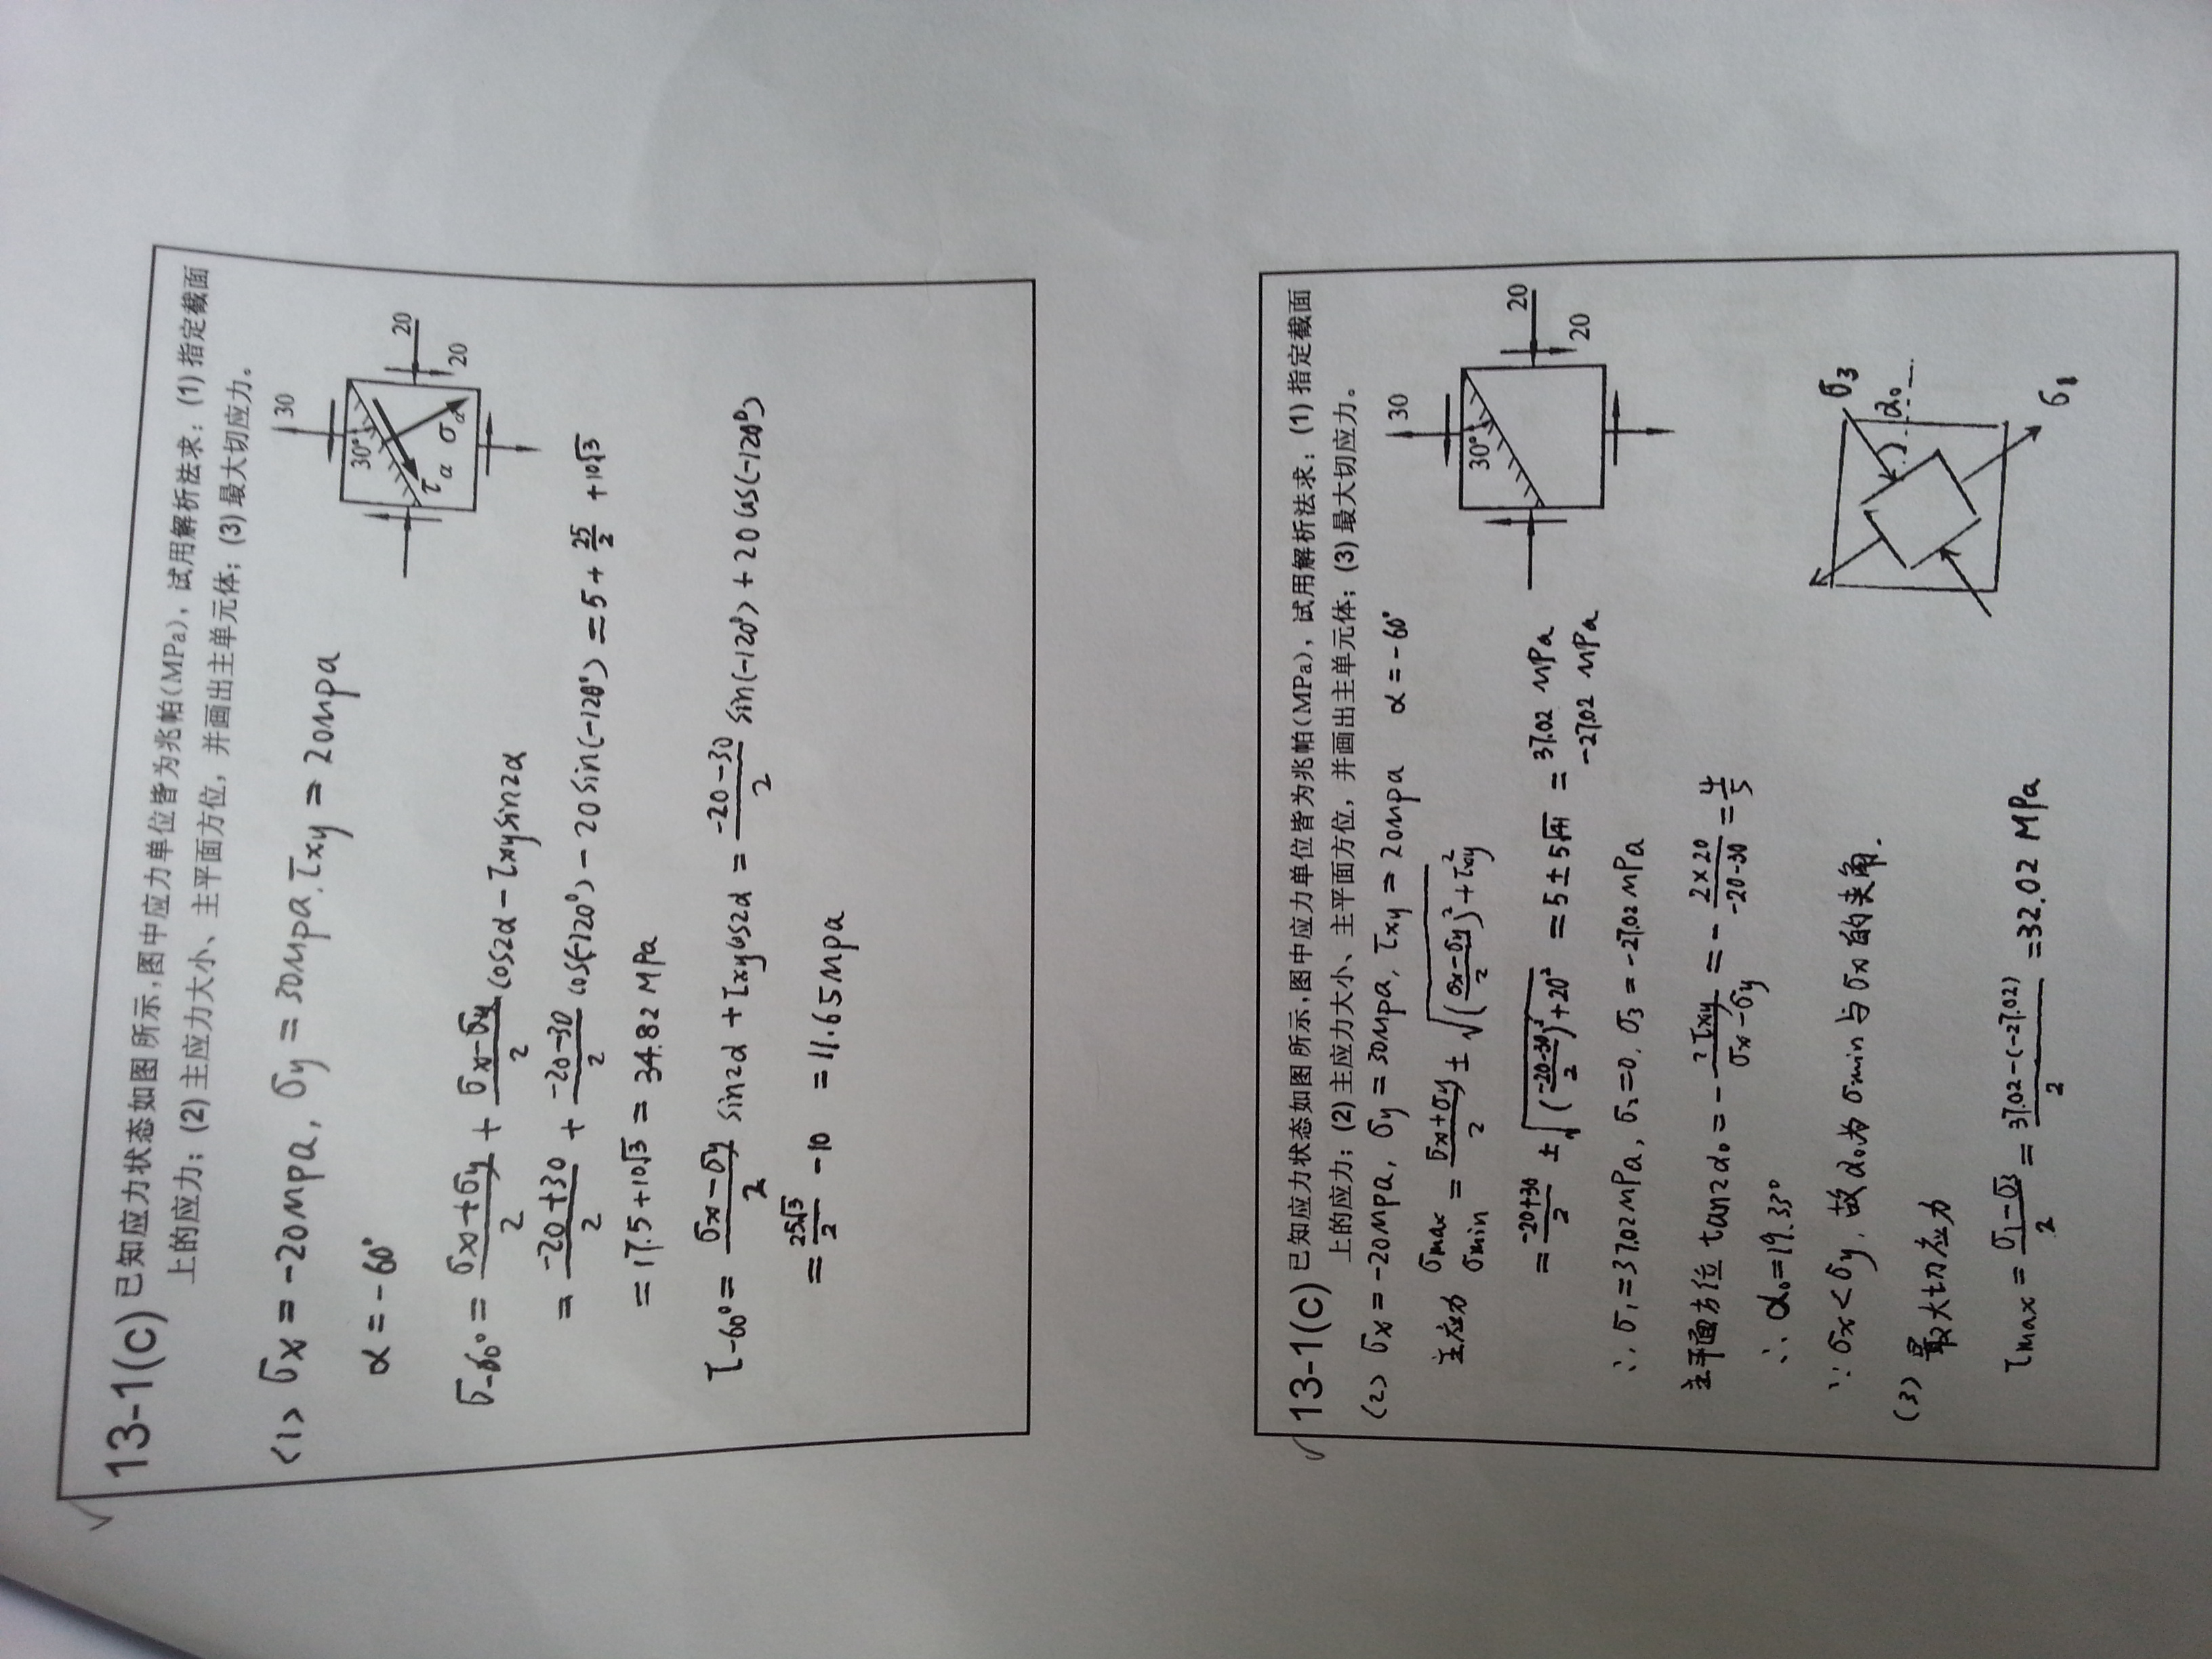 13-1(c) 已知应力状态如图所示,图中应力单位皆为兆帕(MPa),试用解析法求:(1)指定截面
上的应力;(2)主应力大小、主平面方位,并画出主单元体;(3)最大切应力。
(1) σx = -20mpa, σy = 30mpa. τxy = 20mpa
α = -60°
30
20
20
30°
τα
σα
σ-60° = (σx+σy)/2 + (σx-σy)/2 cos2α - τxy sin2α
= (-20+30)/2 + (-20-30)/2 cos(-120°) - 20 sin(-120°) = 5 + 25/2 + 10√3
= 17.5 + 10√3 = 34.82 MPa
τ-60° = (σx-σy)/2 sin2α + τxy cos2α = (-20-30)/2 sin(-120°) + 20 cos(-120°)
= 25√3/2 - 10 = 11.65mpa
13-1(c) 已知应力状态如图所示,图中应力单位皆为兆帕(MPa),试用解析法求:(1)指定截面
上的应力;(2)主应力大小、主平面方位,并画出主单元体;(3)最大切应力。
(2) σx = -20mpa, σy = 30mpa, τxy = 20mpa α = -60°
30
20
20
30°
主应力 σmax σmin = (σx+σy)/2 ± √(((σx-σy)/2)²+τxy²)
= (-20+30)/2 ± √(((-20-30)/2)²+20²) = 5 ± 5√41 = 37.02 mPa
-27.02 mPa
∴ σ1 = 37.02mPa, σ2 = 0, σ3 = -27.02 mPa
主平面方位 tan2α0 = - 2τxy/(σx-σy) = - (2×20)/(-20-30) = 4/5
∴ α0 = 19.33°
∵ σx < σy, 故α0为σmin与σx的夹角.
σ3
α0
σ1
(3) 最大切应力
τmax = (σ1-σ3)/2 = (37.02-(-27.02))/2 = 32.02 MPa